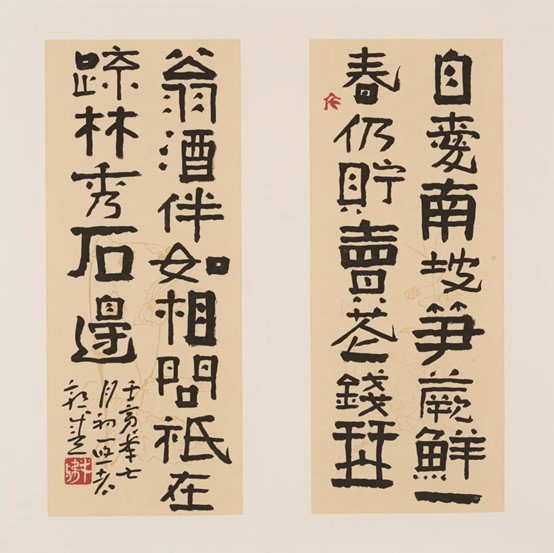 自愛南坡笋蕨鮮一
春仍貯賣花錢
翁酒伴如相問祇在
疎林秀石邊
壬寅年七
月初一